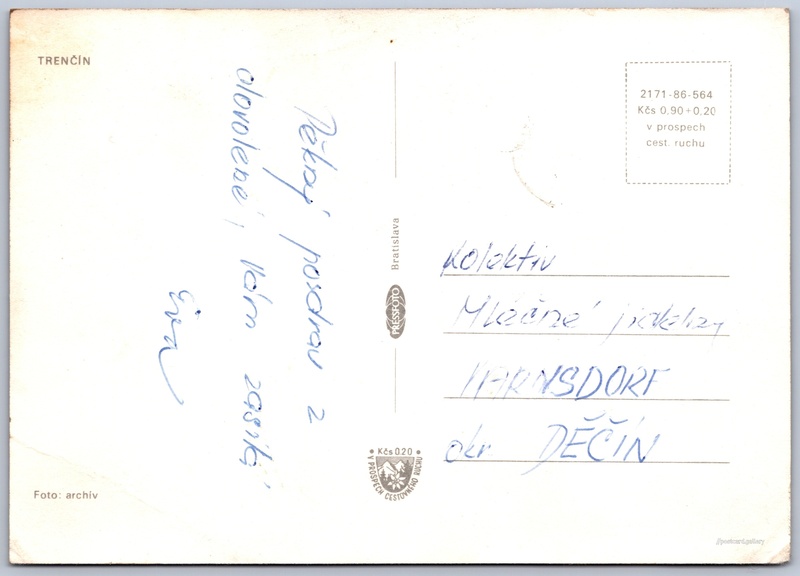 TRENČÍN
Pěkný pozdrav z
dovolené, Vám zasílá
Eva
Foto: archív
PRESSFOTO Bratislava
• Kčs 0,20 •
V PROSPECH CESTOVNÉHO RUCHU
2171-86-564
Kčs 0,90+0,20
v prospech
cest. ruchu
Kolektiv
Mléčné
VARNSDORF
okr. DĚČÍN
//postcard.gallery